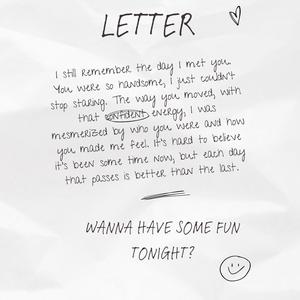 LETTER
I still remember the day I met you.
You were so handsome, I just couldn't
stop staring. The way you moved, with
that confident energy, I was
mesmerized by who you were and how
you made me feel. It's hard to believe
it's been some time now, but each day
that passes is better than the last.
WANNA HAVE SOME FUN
TONIGHT?